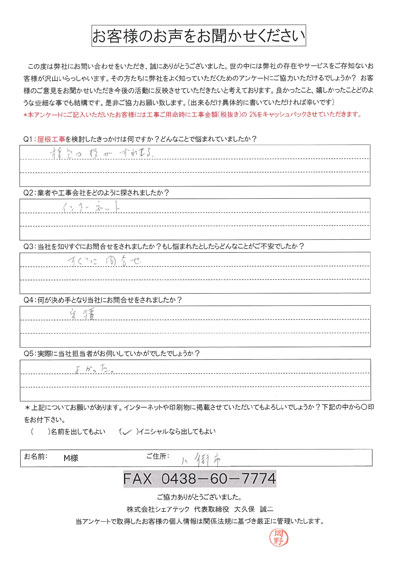 お客様のお声をお聞かせください
この度は弊社にお問い合わせをいただき、誠にありがとうございました。世の中には弊社の存在やサービスをご存知ないお
客様が沢山いらっしゃいます。その方たちに弊社をよく知っていただくためのアンケートにご協力いただけるでしょうか? お客
様のご意見をお聞かせいただき今後の活動に反映させていきたいと考えております。良かったこと、嬉しかったことどのよ
うな些細な事でも結構です。是非ご協力お願い致します。（出来るだけ具体的に書いていただければ幸いです）
*本アンケートにご記入いただいたお客様には工事ご用命時に工事金額(税抜き)の 2%をキャッシュバックさせていただきます。
Q1:屋根工事を検討したきっかけは何ですか?どんなことで悩まれていましたか?
Q2:業者や工事会社をどのように探されましたか?
インターネット
Q3:当社を知りすぐにお問合せをされましたか?もし悩まれたとしたらどんなことがご不安でしたか?
すぐに問合せ
Q4:何が決め手となり当社にお問合せをされましたか?
実績
Q5:実際に当社担当者がお伺いしていかがでしたでしょうか?
よかった。
＊上記についてお願いがあります。インターネットや印刷物に掲載させていただいてもよろしいでしょうか?下記の中から〇印
をお付下さい。
(　　)名前を出してもよい　(✓)イニシャルなら出してもよい
お名前: M様 ご住所:
FAX 0438-60-7774
ご協力ありがとうございました。
株式会社シェアテック 代表取締役 大久保 誠二
当アンケートで取得したお客様の個人情報は関係法規に基づき厳正に管理いたします。
岡野